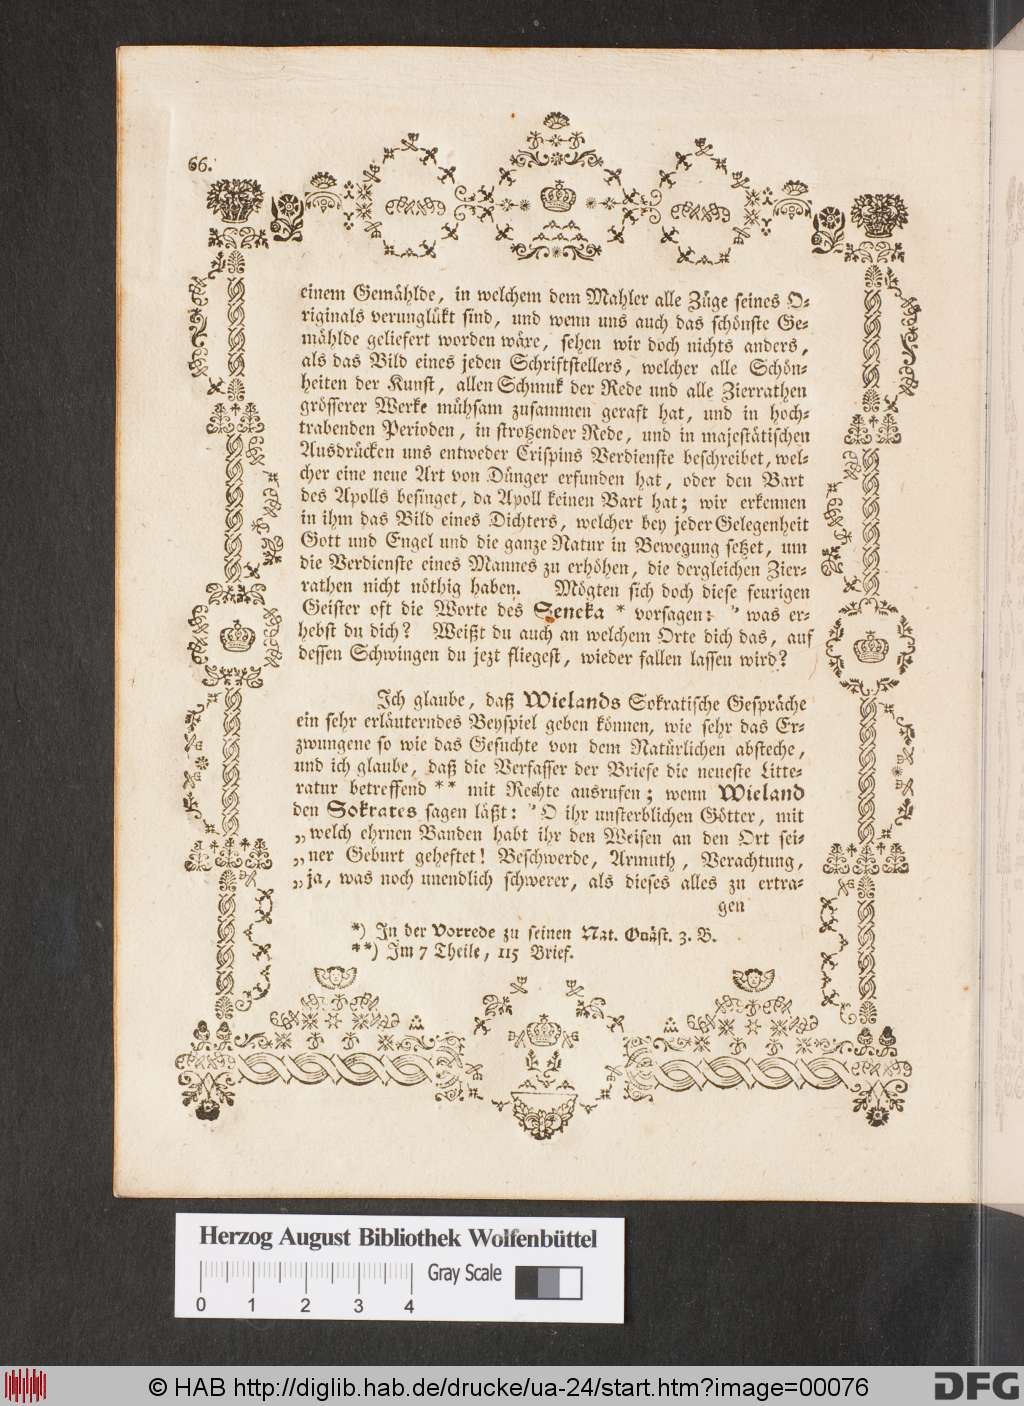 66.
einem Gemählde, in welchem dem Mahler alle Züge seines O-
riginals verunglükt sind, und wenn uns auch das schönste Ge-
mählde geliefert worden wäre, sehen wir doch nichts anders,
als das Bild eines jeden Schriftstellers, welcher alle Schön-
heiten der Kunst, allen Schmuk der Rede und alle Zierrathen
grösserer Werke mühsam zusammen geraft hat, und in hoch-
trabenden Perioden, in strotzender Rede, und in majestätischen
Ausdrücken uns entweder Crispins Verdienste beschreibet, wel-
cher eine neue Art von Dünger erfunden hat, oder den Bart
des Apolls besinget, da Apoll keinen Bart hat; wir erkennen
in ihm das Bild eines Dichters, welcher bey jeder Gelegenheit
Gott und Engel und die ganze Natur in Bewegung setzet, um
die Verdienste eines Mannes zu erhöhen, die dergleichen Zier-
rathen nicht nöthig haben. Mögten sich doch diese feurigen
Geister oft die Worte des Seneka * vorsagen: " was er-
hebst du dich? Weißt du auch an welchem Orte dich das, auf
dessen Schwingen du jezt fliegest, wieder fallen lassen wird?
Ich glaube, daß Wielands Sokratische Gespräche
ein sehr erläuterndes Beyspiel geben können, wie sehr das Er-
zwungene so wie das Gesuchte von dem Natürlichen absteche,
und ich glaube, daß die Verfasser der Briefe die neueste Litte-
ratur betreffend ** mit Rechte ausrufen; wenn Wieland
den Sokrates sagen läßt: "O ihr unsterblichen Götter, mit
„welch ehrnen Banden habt ihr den Weisen an den Ort sei-
„ner Geburt geheftet! Beschwerde, Armuth, Verachtung,
„ja, was noch unendlich schwerer, als dieses alles zu ertra-
gen
*) In der Vorrede zu seinen Nat. Quäst. 3. B.
**) Im 7 Theile, 115 Brief.
Herzog August Bibliothek Wolfenbüttel
Gray Scale
0 1 2 3 4
© HAB http://diglib.hab.de/drucke/ua-24/start.htm?image=00076
DFG